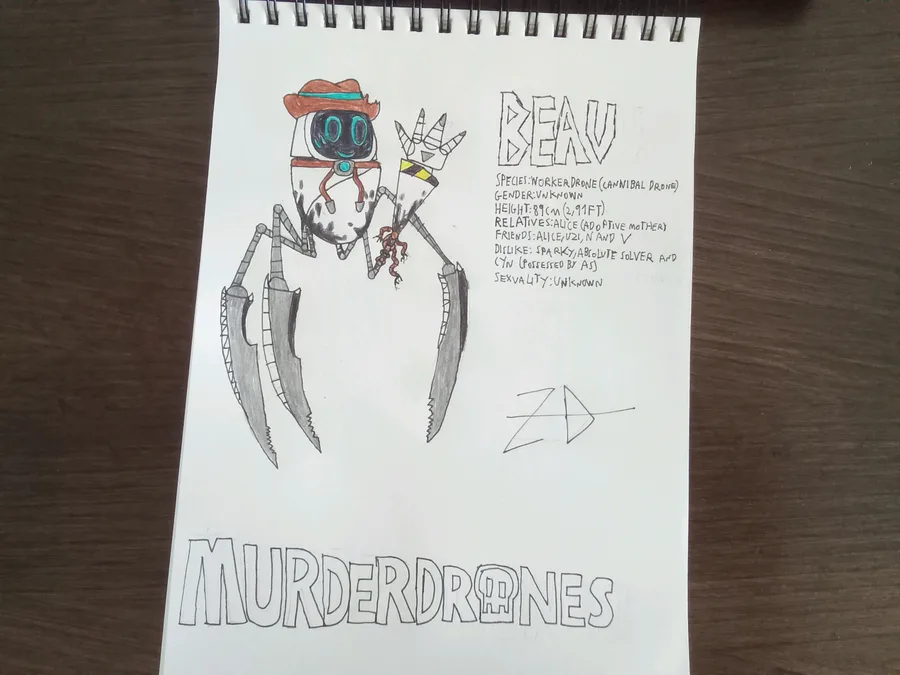 BEAU
SPECIES:WORKERDRONE(CANNIBAL DRONE)
GENDER:UNKNOWN
HEIGHT:89CM(2,91FT)
RELATIVES:ALICE(ADOPTIVE MOTHER)
FRIENDS:ALICE,UZI,N AND V
DISLIKE: SPARKY,ABSOLUTE SOLVER AND
CYN (POSSESSED BY AS)
SEXUALITY:UNKNOWN
ZD
MURDERDRONES